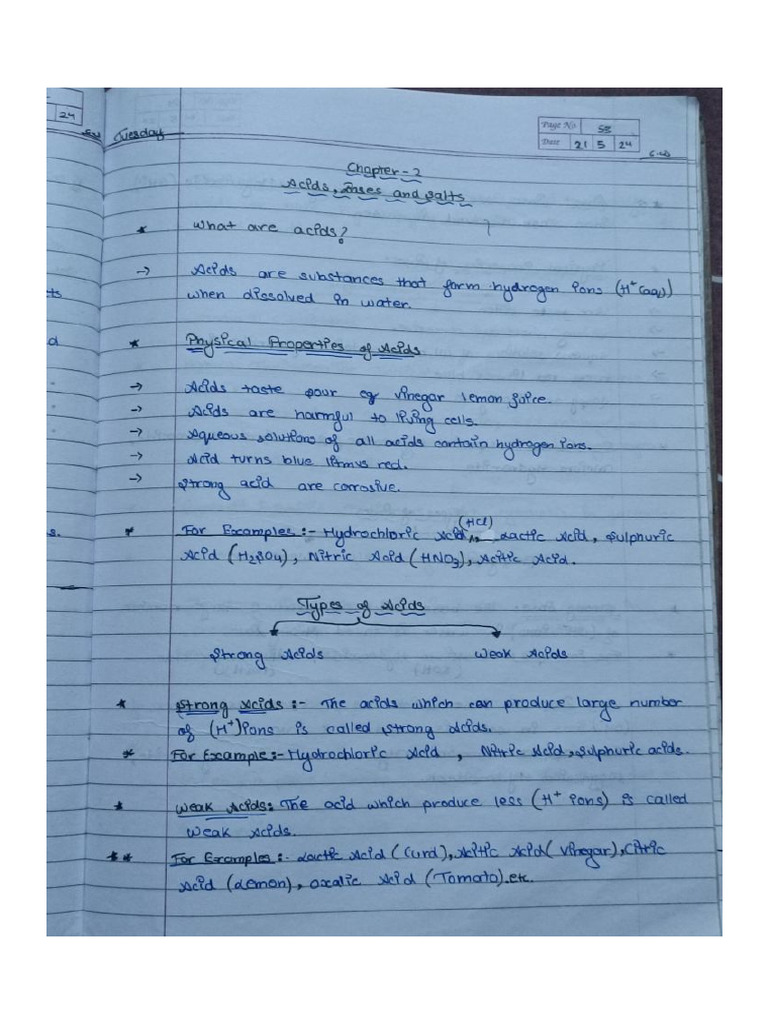 24
Tuesday
Page No. 53
Date 21 5 24
C.W
Chapter-2
Acids, Bases and Salts
* What are acids?
→ Acids are substances that form hydrogen ions (H⁺(aq))
when dissolved in water.
* Physical Properties of Acids
→ Acids taste sour eg vinegar lemon juice.
→ Acids are harmful to living cells.
→ Aqueous solutions of all acids contain hydrogen ions.
→ Acid turns blue litmus red.
→ Strong acid are corrosive.
* For Examples :- Hydrochloric Acid (HCl), Lactic Acid, Sulphuric
Acid (H₂SO₄), Nitric Acid (HNO₃), Acitic Acid.
Types of Acids
Strong Acids Weak Acids
* Strong Acids :- The acids which can produce large number
of (H⁺) ions is called strong Acids.
* For Example :- Hydrochloric Acid, Nitric Acid, Sulphuric acids.
* Weak Acids: The acid which produce less (H⁺ ions) is called
weak Acids.
** For Examples :- Lactic Acid (Curd), Acitic Acid (Vinegar), Citric
Acid (Lemon), Oxalic Acid (Tomato) .etc.
ts
d
s.